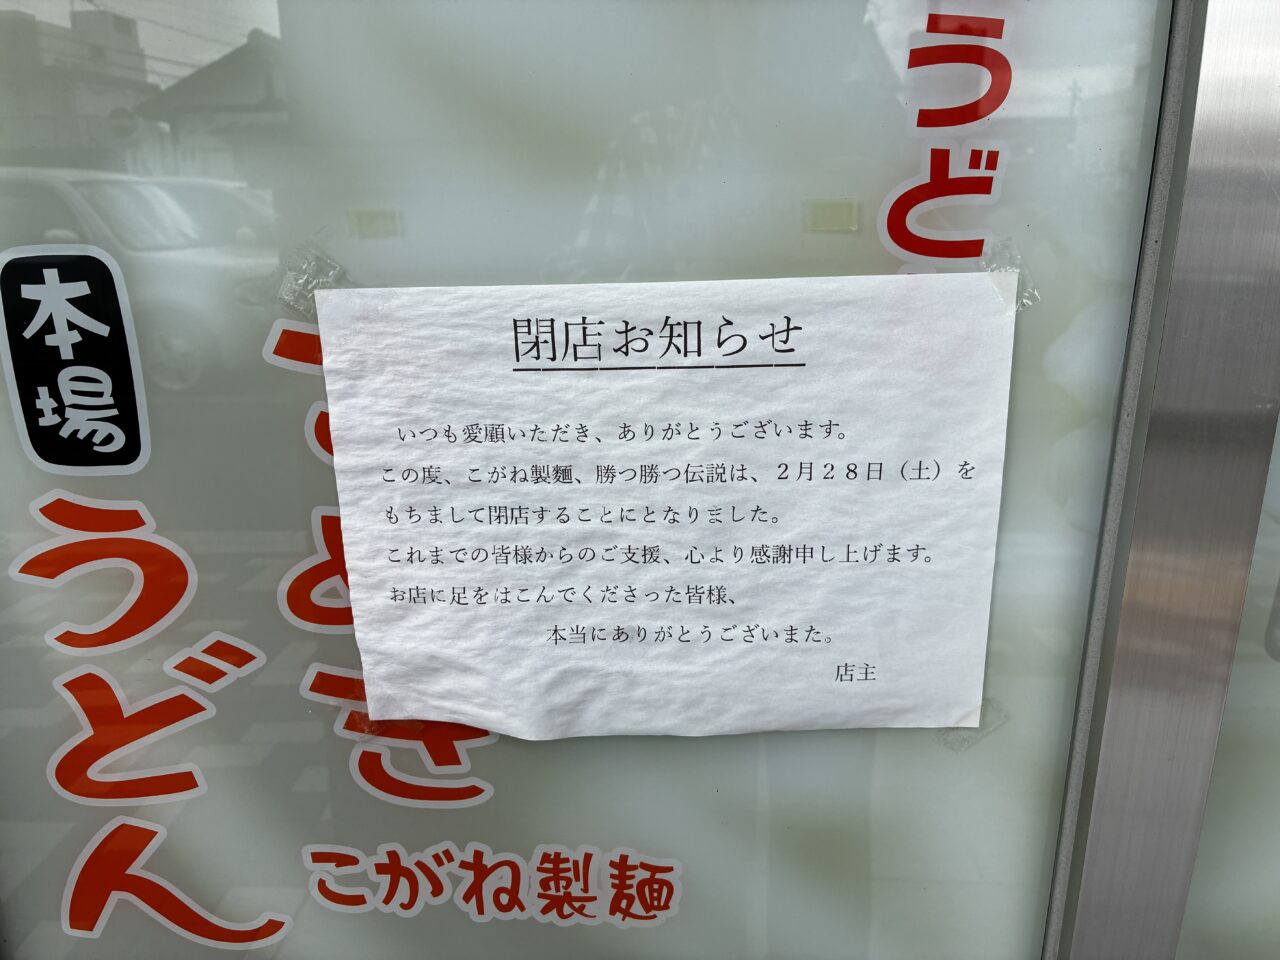 うど
本場
うどん
閉店お知らせ
いつも愛顧いただき、ありがとうございます。
この度、こがね製麺、勝つ勝つ伝説は、２月２８日（土）を
もちまして閉店することにとなりました。
これまでの皆様からのご支援、心より感謝申し上げます。
お店に足をはこんでくださった皆様、
本当にありがとうございまた。
店主
こがね製麺